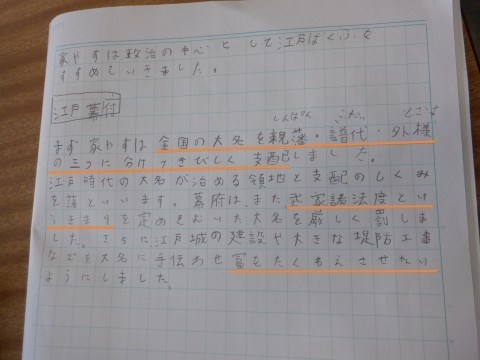 家やすは政治の中心として江戸ばくふを
すすめていきました。
江戸幕付
しんぱん ふだい とざま
まず家やすは全国の大名を親藩・譜代・外様
の三つに分けてきびしく支配しました。
江戸時代の大名が治める領地と支配のしくみ
を藩といいます。幕府は、また武家諸法度とい
うきまりを定めそむいた大名を厳しく罰しま
した。さらに江戸城の建設や大きな堤防工事
などを大名に手伝わせ富をたくわえさせない
ようにしました。